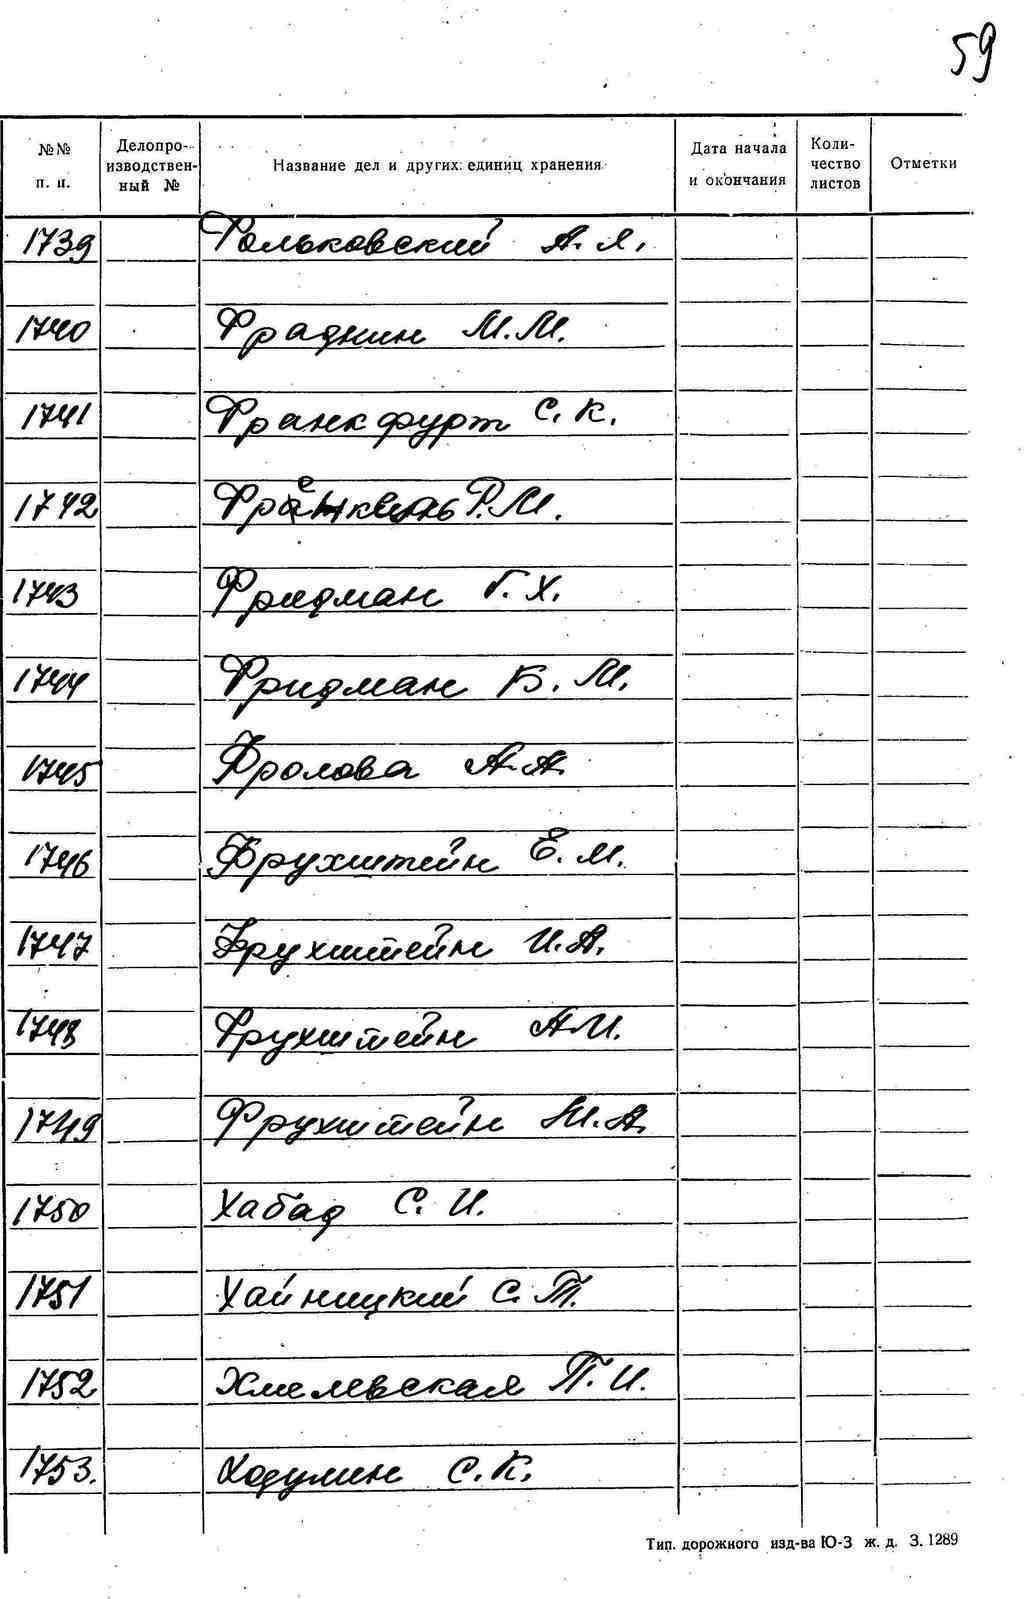 59
№№ п. п. Делопроизводственный № Название дел и других единиц хранения Дата начала и окончания Количество листов Отметки
1739 Фольковский А. Я.
1740 Фраднин М. М.
1741 Франкфурт С. К.
1742 Френкель Р. М.
1743 Фридман Г. Х.
1744 Фридман Б. М.
1745 Фролова А. А.
1746 Фрухштейн Е. М.
1747 Фрухштейн И. А.
1748 Фрухштейн А. М.
1749 Фрухштейн М. А.
1750 Хабад С. И.
1751 Хайницкий С. Т.
1752 Хмелевская П. И.
1753. Ходулин С. К.
Тип. дорожного изд-ва Ю-З ж. д. З. 1289